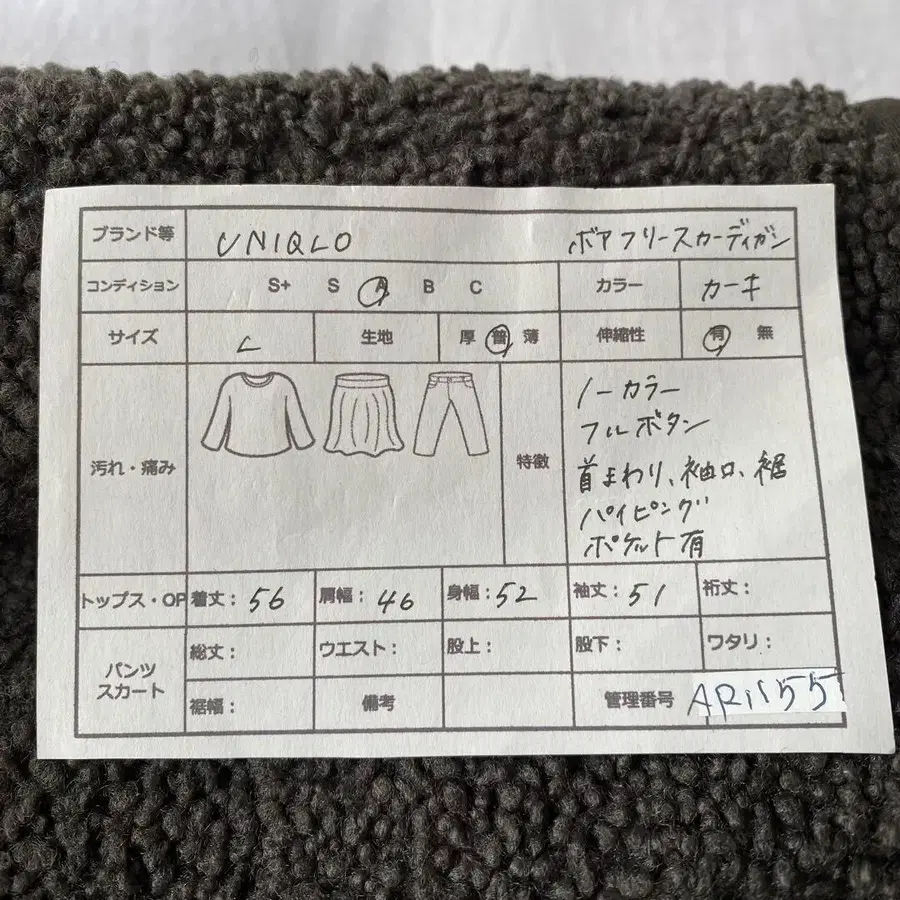 ブランド等 UNIQLO ボアフリースカーディガン
コンディション S+ S A B C カラー カーキ
サイズ L 生地 厚 普 薄 伸縮性 有 無
汚れ・痛み 特徴
ノーカラー
フルボタン
首まわり、袖口、裾
パイピング
ポケット有
トップス・OP 着丈：56 肩幅：46 身幅：52 袖丈：51 裄丈：
パンツ
スカート
総丈： ウエスト： 股上： 股下： ワタリ：
裾幅： 備考 管理番号